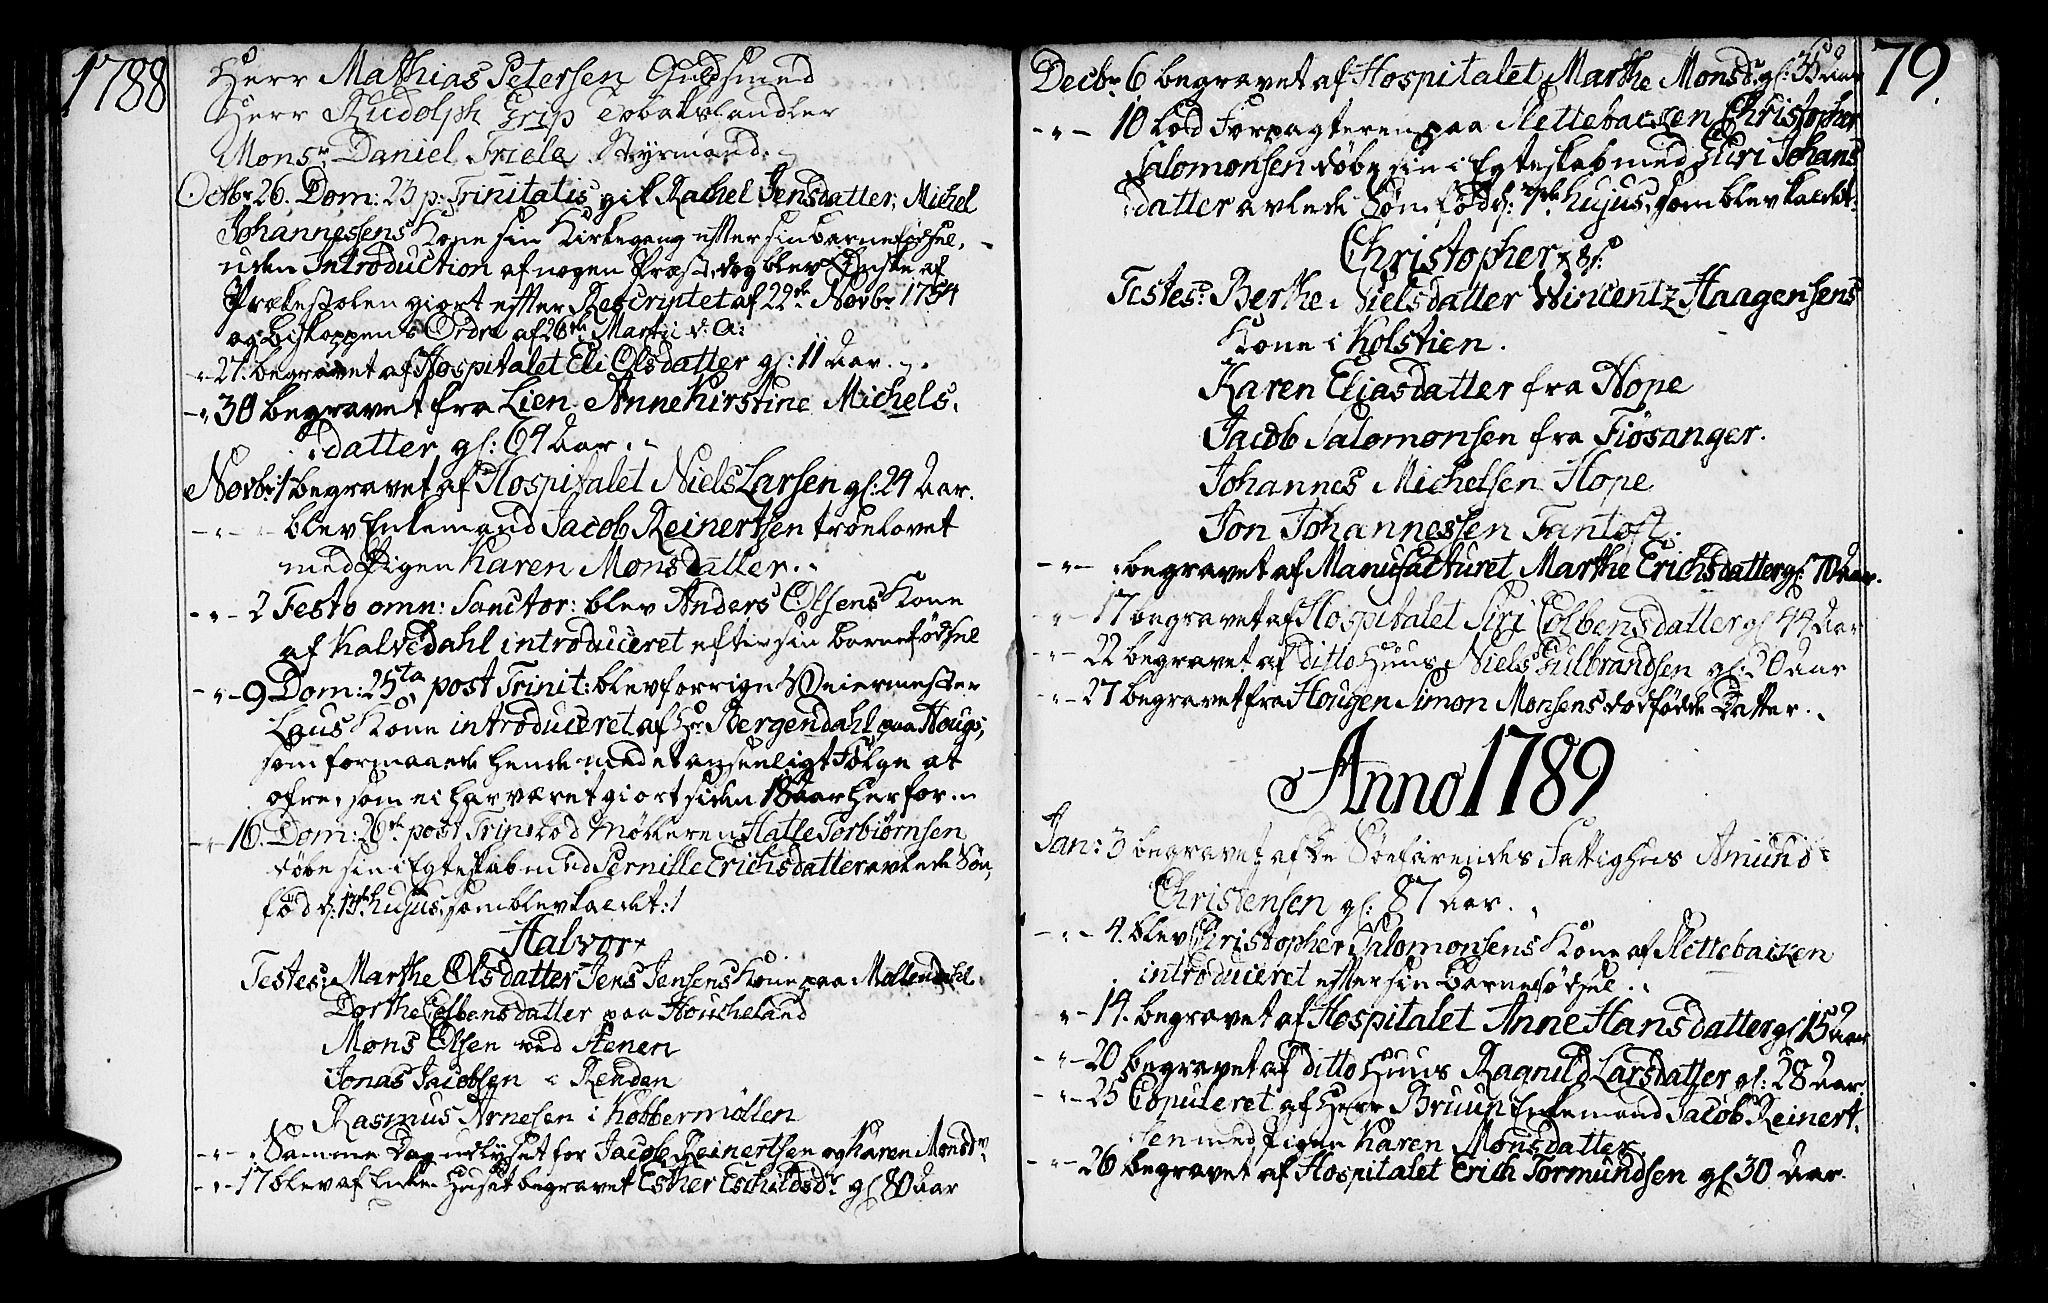 1788
Herr Mathias Petersen Guldsmed
Herr Rudolph Grip Tobakshandler
Monsr. Daniel Friele Styrmand.
Octbr. 26. Dom: 23 p: Trinitatis gik Rachel Jensdatter, Michel
Johannessens Kone sin Kirkegang efter sin barnefødsel,
uden Introduction af nogen Præst, dog blev Ønske af
Prækestolen giort efter Rescriptet af 22de Novbr. 1754
og biskoppens Ordre af 26de Martii d: A:
- " 27. begravet af Hospitalet Eli Olsdatter gl: 11 Aar.
- " 30 begravet fra Lien Anne Kirstine Michels-
datter gl: 64 Aar.
Novbr: 1 begravet af Hospitalet Niels Larsen gl: 24 Aar.
- " - blev Enkemand Jacob Reinertsen troelovet
med Pigen Karen Monsdatter.
- " - 2 Festo omn: Sanctor: blev Anders Olsens Kone
af Kalvedahl introduceret efter sin barnefødsel
- " - 9 Dom: 25ta post Trinit: blev forrige Veiermester
Laus Kone introduceret af Hr. Bergendahl paa Hougs,
som formaaede hende med et anseeligt Følge at
ofre, som ei har været giort siden 18 Aar herfor.
- " - 16. Dom: 26de post Trin: lod Mølleren Halle Torbiørnsen
døbe sin i Egteskab med Pernille Erichsdatter avlede Søn,
fød d: 13de hujus, som blev kaldet:
Halvor
Testes: Marthe Olsdatter Jens Jensens Kone paa Møllendahl
Dorthe Colbensdatter paa Houcheland
Mons Olsen ved Stenen
Jonas Jacobsen i Renden
Rasmus Arnesen i Kobbermøllen
- " - " Samme Dag udlyset for Jacob Reinertsen og Karen Monsdr.
- " - 17 blev af Enke Huset begravet Esther Eschildsdr. gl 80 Aar
79.
Decbr. 6 begravet af Hospitalet Marthe Monsdr. gl: 35 Aar
- " - 10 lod Forpagteren paa Slettebacken Christopher
Salomonsen døbe sin i Egteskab med Guri Johans
datter avlede Søn fød d: 7de hujus, som blev kaldet:
Christopher
Testes: Berthe Nielsdatter Wincentz Haagensens
Kone i Kolstien.
Karen Eliasdatter fra Hope
Jacob Salomonsen fra Fiøsanger.
Johannes Michelsen Hope
Jon Johannessen Fantoft.
- " - " begravet af Manufacturet Marthe Erichsdatter gl: 70 Aar.
- " - 17 begravet af Hospitalet Siri Colbensdatter gl 44 Aar
- " - 22 begravet af ditto Huus Niels Gulbrandsen gl: 20 Aar
- " - 27 begravet fra Hougen Simon Monsens dødfødde Datter.
Anno 1789
Jan: 3 begravet af de Søefarendes Fattighus Amund
Christensen gl: 87 Aar.
- " - 4. blev Christopher Salomonsens Kone af Slettebacken
introduceret efter sin Barnefødsel.
" - 14. begravet af Hospitalet Anne Hansdatter gl 15 Aar
- " - 20 begravet af ditto Huus Ragnild Larsdatter gl: 28 Aar.
- " - 25 Copuleret af Herr Bruun Enkemand Jacob Reinert-
sen med Pigen Karen Monsdatter.
- " - 26 begravet af Hospitalet Erich Tormundsen gl 30 Aar.